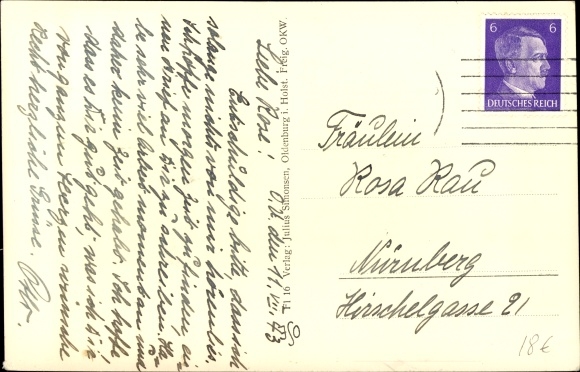 Liebe Rosa!
O.U. den 17. VII. 43
Entschuldige bitte, dass ich
solange nichts von mir hören lies.
Ich hoffe morgen Zeit zu finden, ei-
nen Brief an Dir zu schreiben. Ha-
be sehr viel Arbeit momentan und
daher keine Zeit gehabt. Ich hoffe
dass es Dir gut geht, was ich Dir
von ganzem Herzen wünsche
Recht herzliche Grüsse. Otto.
Fl 16 Verlag: Julius Simonsen, Oldenburg i. Holst. Freig. OKW.
6 6
DEUTSCHES REICH
Fräulein
Rosa Rau
Nürnberg
Hirschelgasse 21
18€